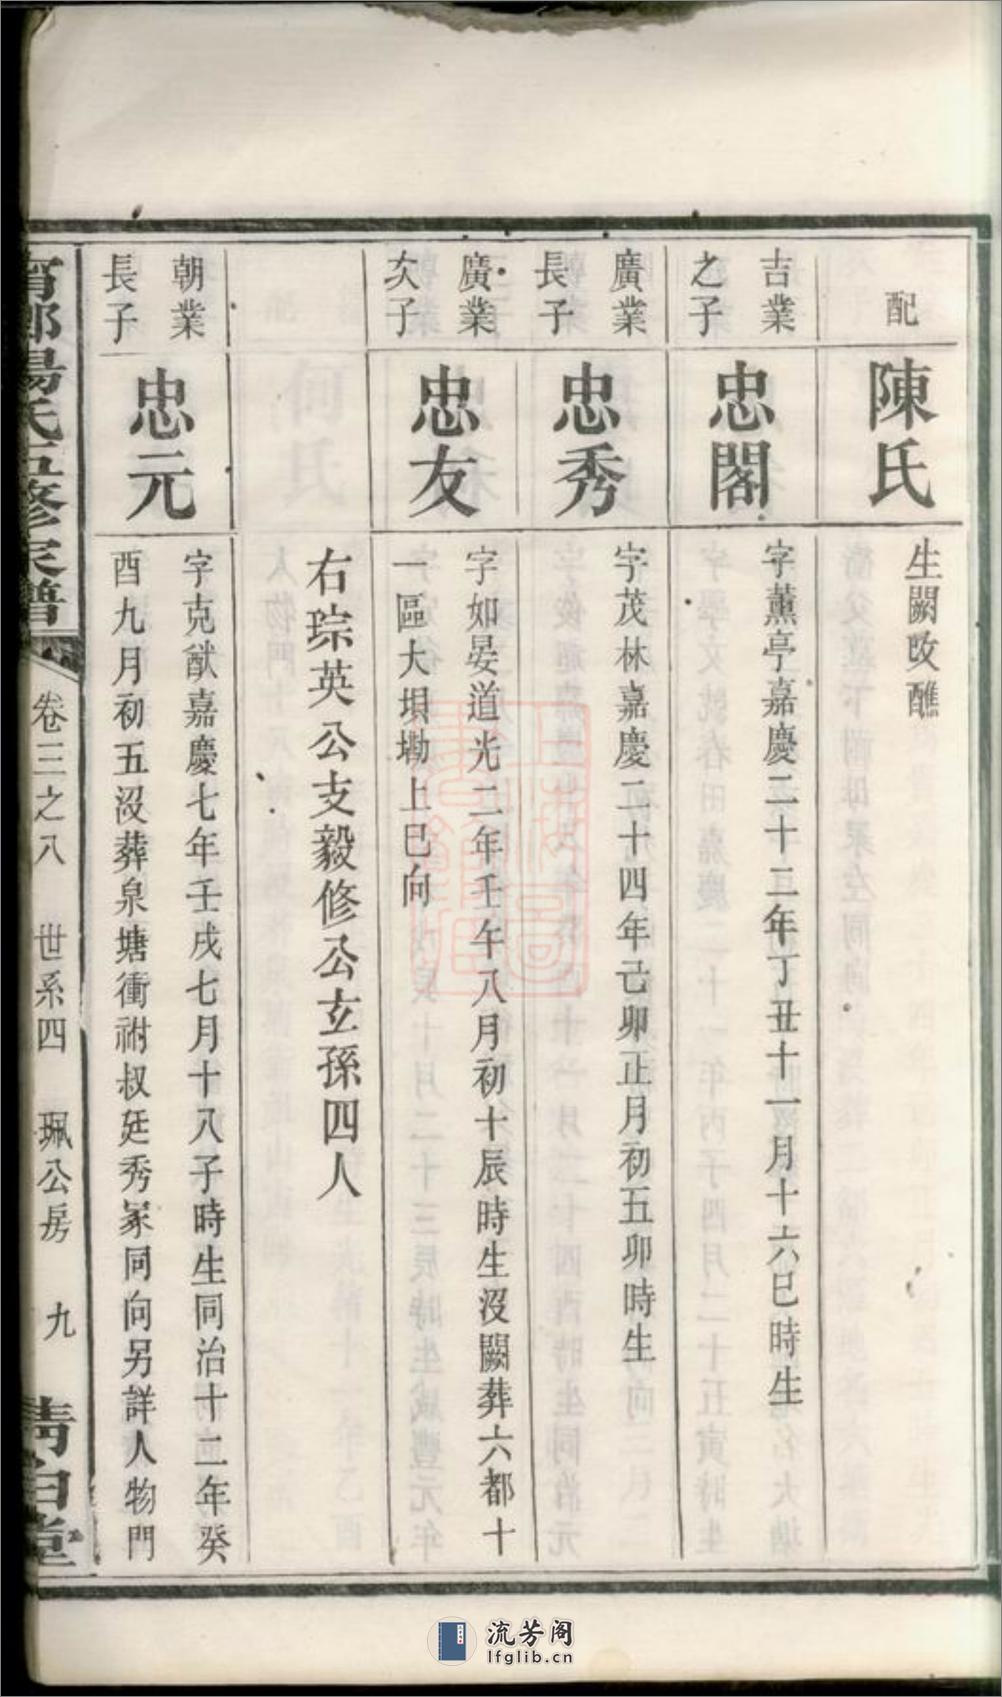 配
陳氏
生闕改醮
吉業
之子
忠閣
字薰亭嘉慶二十二年丁丑十一月十六巳時生
廣業
長子
忠秀
字茂林嘉慶二十四年己卯正月初五卯時生
廣業
次子
忠友
字如晏道光二年壬午八月初十辰時生沒闕葬六都十
一區大垻坳上巳向
右琮英公支毅修公玄孫四人
朝業
長子
忠元
字克猷嘉慶七年壬戌七月十八子時生同治十二年癸
酉九月初五沒葬泉塘衝祔叔廷秀冢同向另詳人物門
楊氏五修家譜
卷三之八 世系四 珮公房 九
清白堂
流芳阁
lfglib.cn